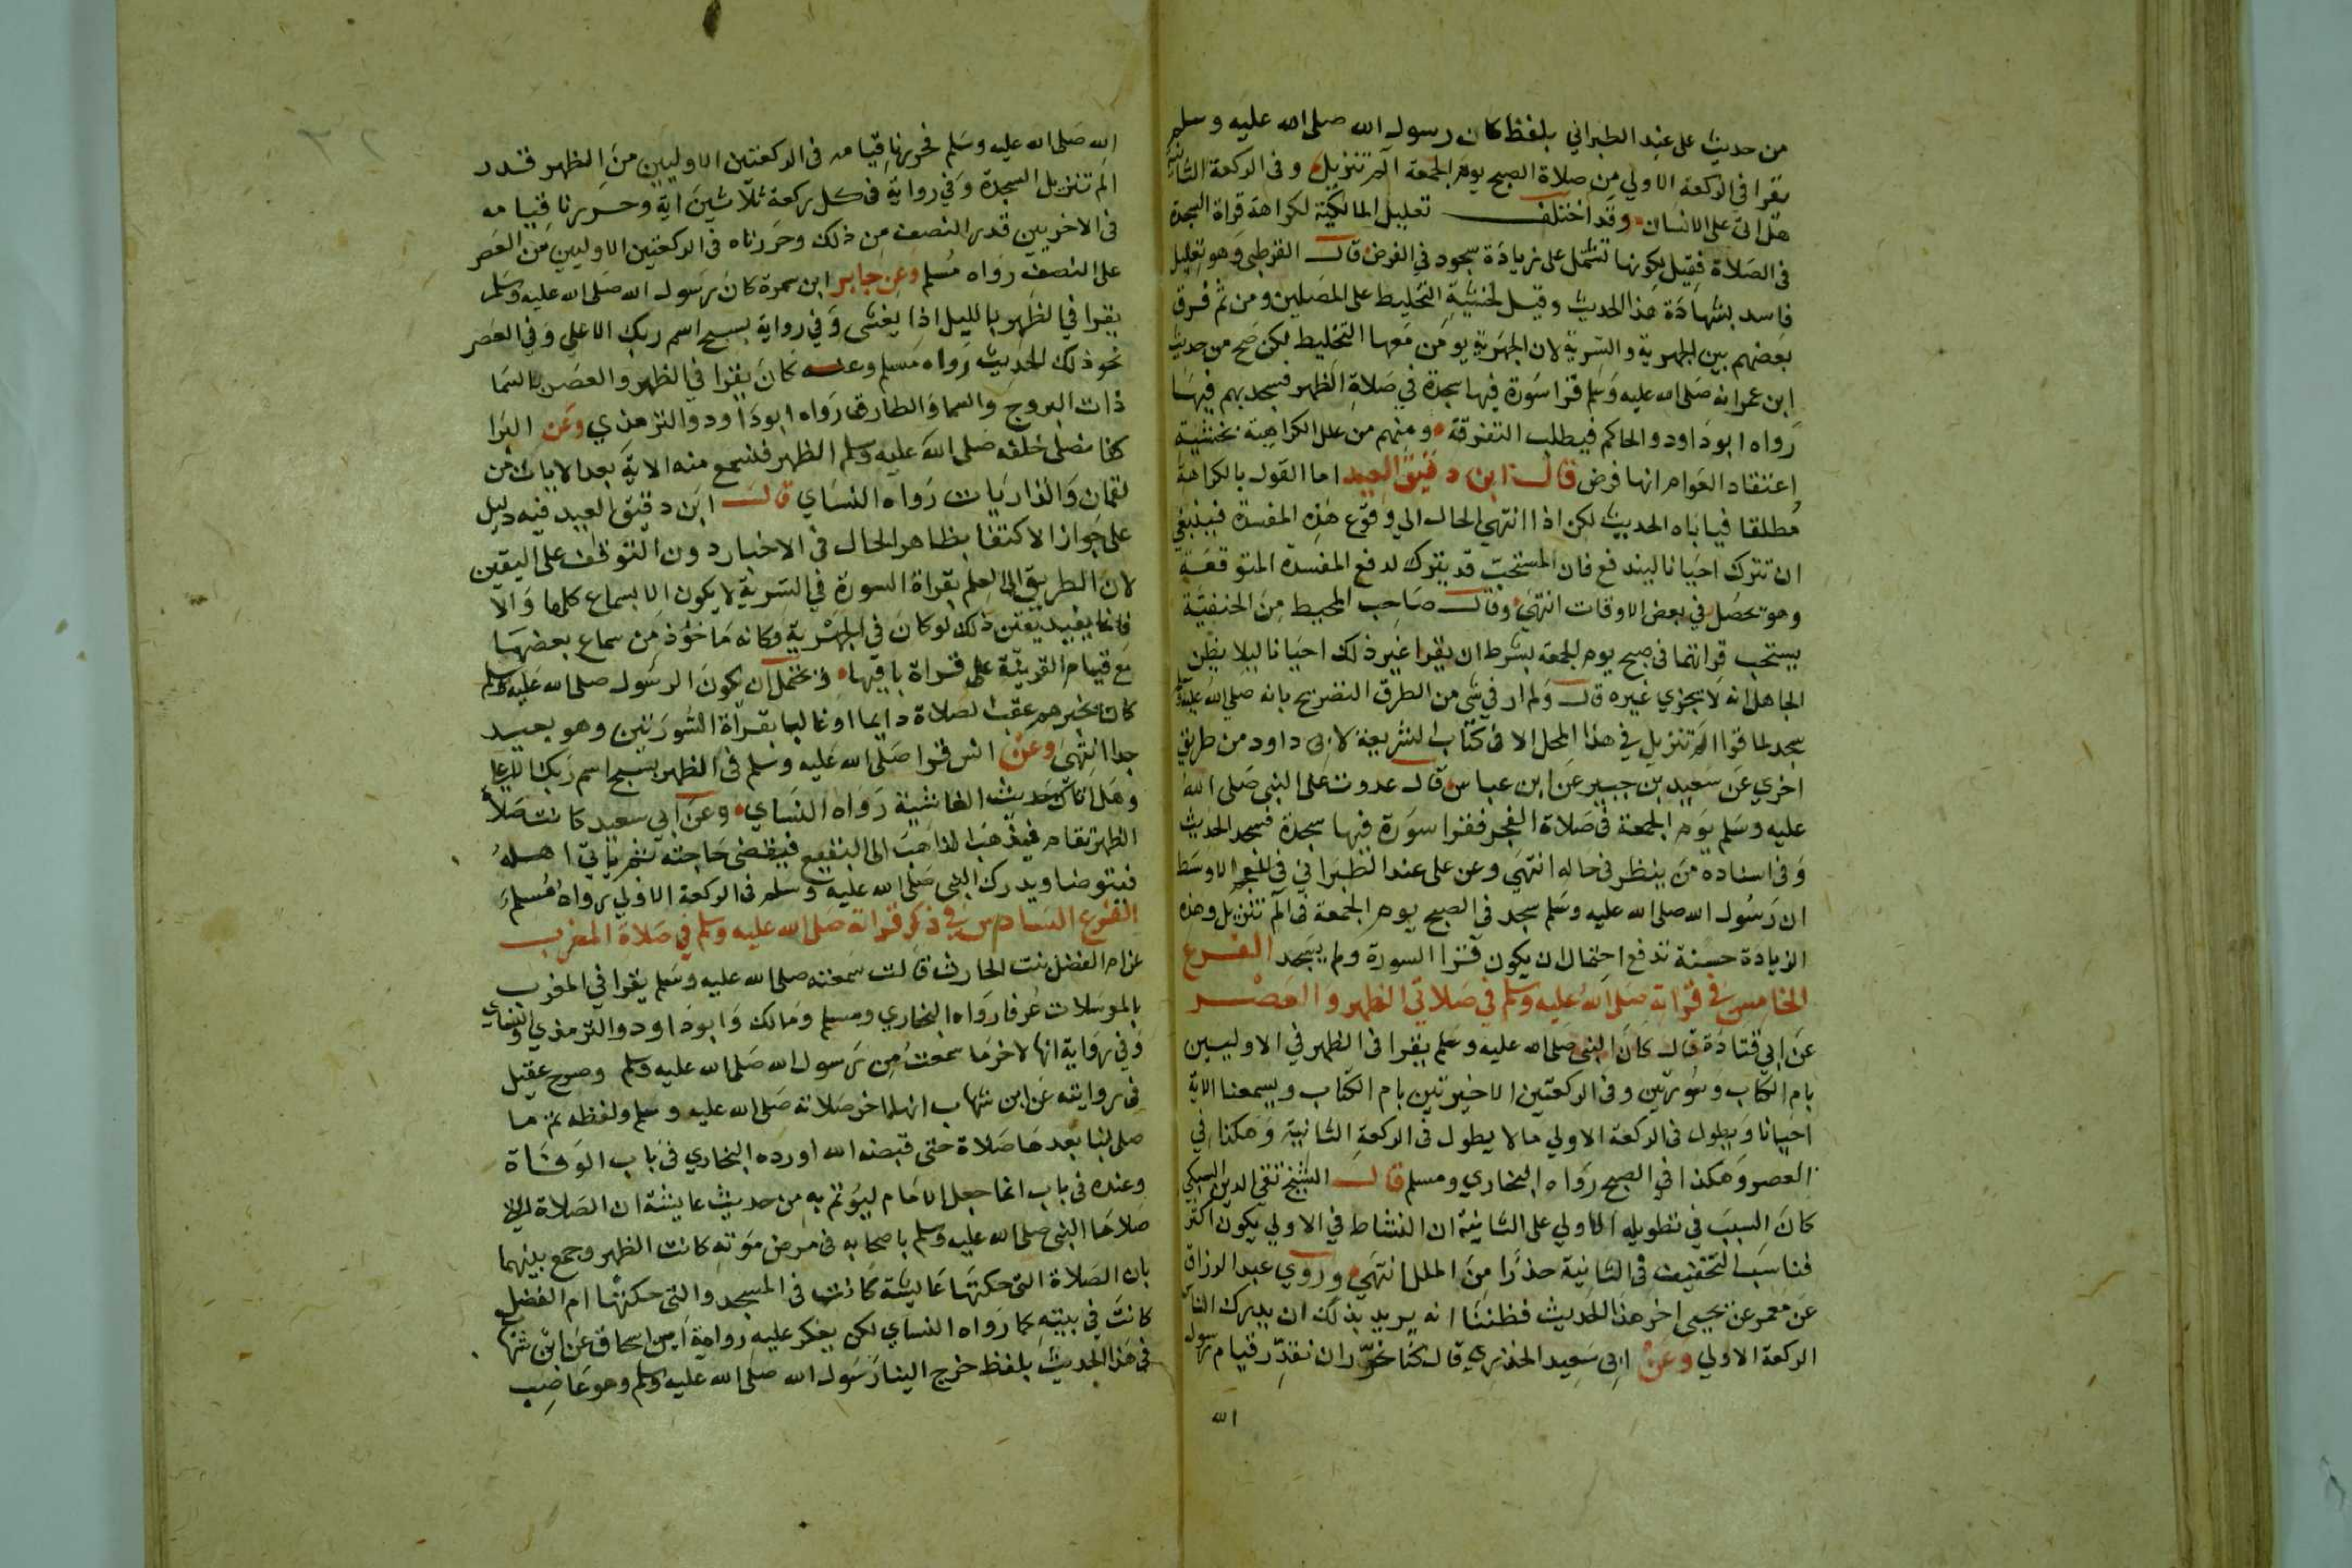 من حديث على عند الطبراني بلفظ كان رسول الله صلى الله عليه وسلم
يقرا في الركعة الاولي من صلاة الصبح يوم الجمعة الم تنزيل وفى الركعة الثانية
هل اتى على الانسان وقد اختلف تعليل المالكية لكراهة قراة السجدة
فى الصلاة فقيل لكونها تشتمل على زيادة سجود في الفرض قال القرطبى وهو تعليل
فاسد بشهادة هذا الحديث وقيل لخشية التخليط على المصلين ومن ثم فرق
بعضهم بين الجهرية والسرية لان الجهرية يومن معها التخليط لكن صح من حديث
ابن عمر انه صلى الله عليه وسلم قرا سورة فيها سجدة في صلاة الظهر فسجد بهم فيها
رواه ابوداود والحاكم فيطلب التفرقة ومنهم من علل الكراهية بخشية
اعتقاد العوام انها فرض قال ابن دقيق العيد اما القول بالكراهة
مطلقا فياباه الحديث لكن اذا انتهى الحال الي وقوع هذه المفسدة فينبغي
ان تترك احيانا ليندفع فان المستحب قد يترك لدفع المفسدة المتوقعة
وهو تحصل في بعض الاوقات انتهى وقال صاحب المحيط من الحنفية
يستحب قرائتها فى صبح يوم الجمعة بشرط ان يقرا غير ذلك احيانا ليلا يظن
الجاهل انه لا يجزي غيره قال ولم ار في شى من الطرق التصريح بانه صلى الله عليه وسلم
سجد لما قرا الم تنزيل في هذا المحل الا فى كتاب الشريعة لابن ابى داود من طريق
اخري عن سعيد بن جبير عن ابن عباس قال غدوت على النبى صلى الله
عليه وسلم يوم الجمعة فى صلاة الفجر فقرا سورة فيها سجدة فسجد الحديث
وفى اسناده من ينظر فى حاله انتهى وعن على عند الطبراني في المعجم الاوسط
ان رسول الله صلى الله عليه وسلم سجد في الصبح يوم الجمعة فى الم تنزيل وهذه
الزيادة حسنة تدفع احتمال ان يكون قرا السورة ولم يسجد الفرع
الخامس في قراته صلى الله عليه وسلم في صلاتي الظهر والعصر
عن ابي قتادة قال كان النبى صلى الله عليه وسلم يقرا فى الظهر في الاوليين
بام الكتاب وسورتين وفى الركعتين الاخيرتين بام الكتاب ويسمعنا الاية
احيانا ويطول فى الركعة الاولي ما لا يطول فى الركعة الثانية وهكذا في
العصر وهكذا في الصبح رواه البخاري ومسلم قال الشيخ تقى الدين السبكي
كان السبب في تطويله الاولي على الثانية ان النشاط في الاولي يكون اكثر
فناسب التخفيف فى الثانية حذرا من الملل انتهى وروي عبد الرزاق
عن معمر عن يحيى اخر هذا الحديث فظننا انه يريد بذلك ان يدرك الناس
الركعة الاولي وعن ابى سعيد الخدري قال كنا نحزر ان نقدر قيام رسول
الله
الله صلى الله عليه وسلم فحزرنا قيامه فى الركعتين الاوليين من الظهر قدر
الم تنزيل السجدة وفي رواية فى كل ركعة ثلاثين اية وحزرنا قيامه
فى الاخريين قدر النصف من ذلك وحزرناه فى الركعتين الاوليين من العصر
على النصف رواه مسلم وعن جابر ابن سمرة كان رسول الله صلى الله عليه وسلم
يقرا في الظهر بالليل اذا يغشى وفي رواية بسبح اسم ربك الاعلى وفي العصر
نحو ذلك الحديث رواه مسلم وعنه كان يقرا في الظهر والعصر بالسما
ذات البروج والسما والطارق رواه ابوداود والترمذي وعن البرا
كنا نصلى خلفه صلى الله عليه وسلم الظهر فنسمع منه الاية بعد الايات من
لقمان والذاريات رواه النساي قال ابن دقيق العيد فيه دليل
على جواز الاكتفا بظاهر الحال فى الاخبار دون التوقف على اليقين
لان الطريق الى العلم بقراة السورة في السرية لا يكون الا بسماع كلها والا
فانما يفيد يقين ذلك لو كان في الجهرية وكانه ماخوذ من سماع بعضها
مع قيام القرينة على قراة باقيها ويحتمل ان يكون الرسول صلى الله عليه وسلم
كان يخبرهم عقب الصلاة دايما او غالبا بقراة السورتين وهو بعيد
جدا انتهى وعن انس قرا صلى الله عليه وسلم فى الظهر بسبح اسم ربك الاعلى
وهل اتاك حديث الغاشية رواه النساي وعن ابي سعيد كانت صلاة
الظهر تقام فيذهب الذاهب الى البقيع فيقضى حاجته ثم ياتي اهله
فيتوضا ويدرك النبى صلى الله عليه وسلم فى الركعة الاولي رواه مسلم
الفرع السادس في ذكر قراته صلى الله عليه وسلم في صلاة المغرب
عن ام الفضل بنت الحارث قالت سمعته صلى الله عليه وسلم يقرا في المغرب
بالمرسلات عرفا رواه البخاري ومسلم ومالك وابوداود والترمذي والنساي
وفي رواية انها لاخر ما سمعت من رسول الله صلى الله عليه وسلم وصرح عقيل
فى روايته عن ابن شهاب انها اخر صلاته صلى الله عليه وسلم ولفظه ثم ما
صلى لنا بعدها صلاة حتى قبضه الله اورده البخاري فى باب الوفاة
وعنده فى باب انما جعل الامام ليوتم به من حديث عايشة ان الصلاة التي
صلاها النبى صلى الله عليه وسلم باصحابه فى مرض موته كانت الظهر وجمع بينهما
بان الصلاة التى حكتها عايشة كانت فى المسجد والتى حكتها ام الفضل
كانت في بيته كما رواه النساي لكن يعكر عليه رواية ابن اسحاق عن ابن شهاب
فى هذا الحديث بلفظ خرج الينا رسول الله صلى الله عليه وسلم وهو عاصب